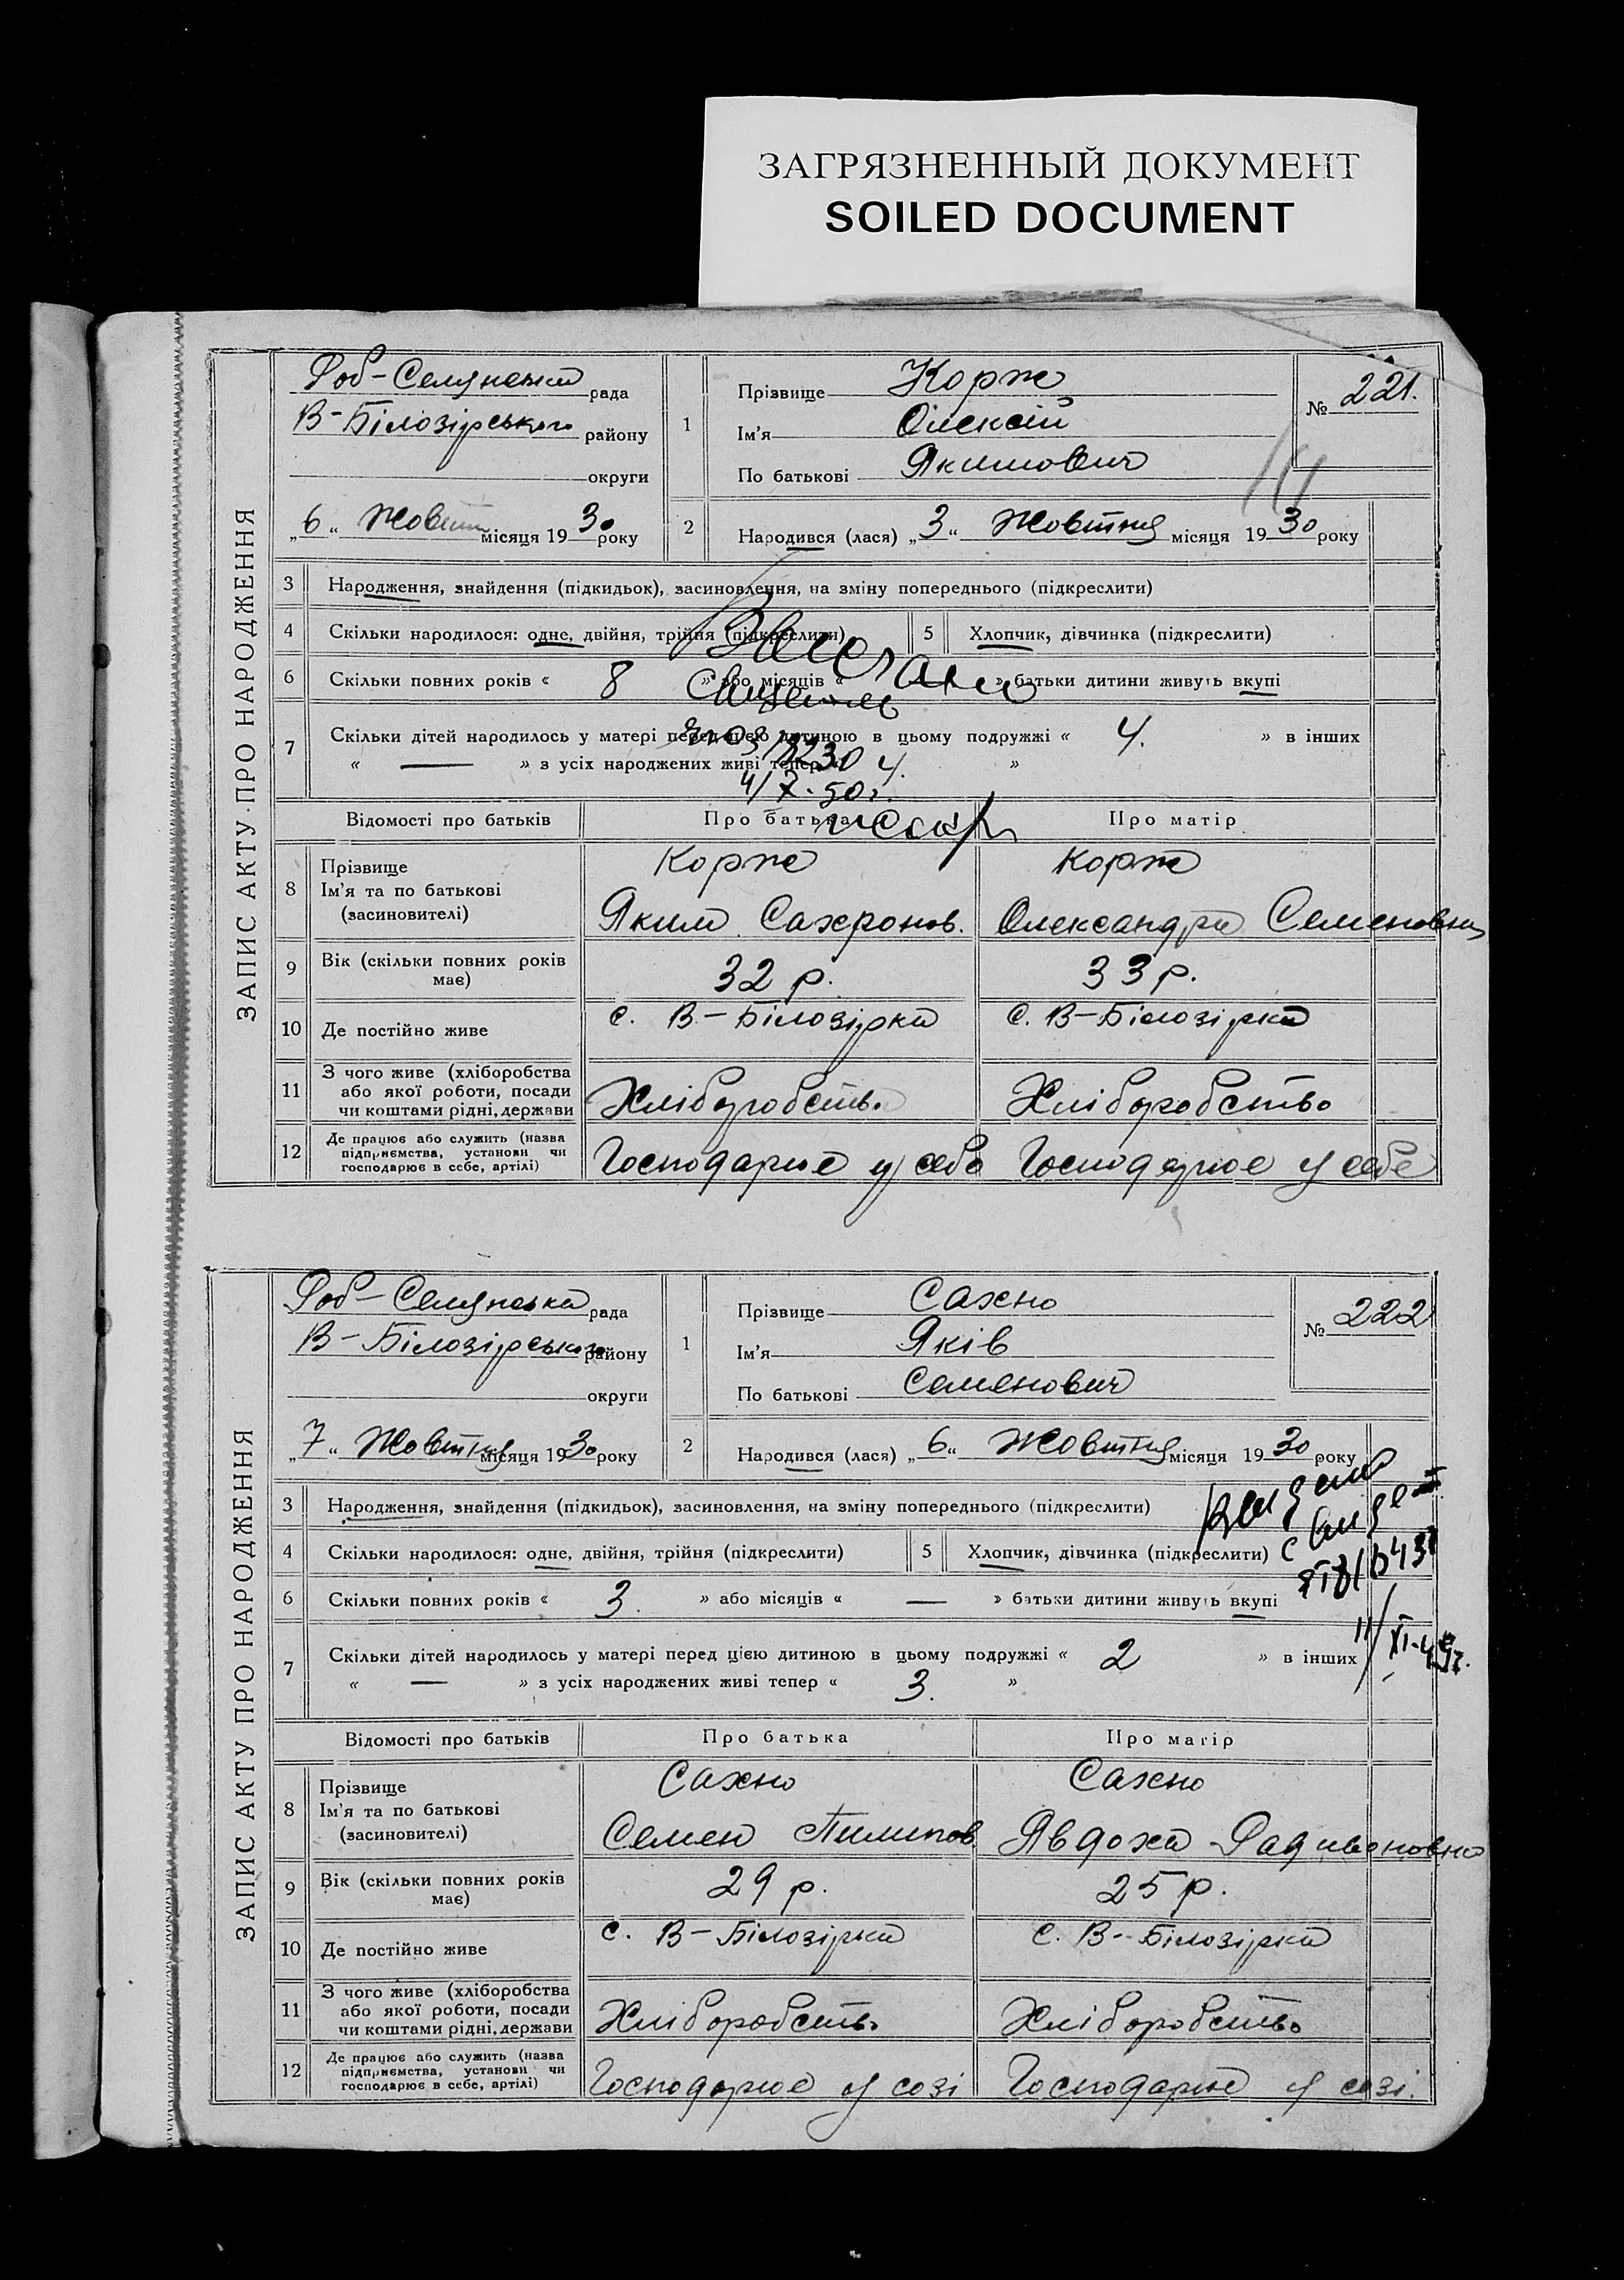 ЗАГРЯЗНЕННЫЙ ДОКУМЕНТ
SOILED DOCUMENT
ЗАПИС АКТУ ПРО НАРОДЖЕННЯ
Роб-Селянська рада
В-Білозірського району
округи
„6“ Жовтн місяця 1930 року
1
Прізвище Корж
Ім'я Олексій
По батькові Якимович
№ 221.
2
Народився (лася) „3“ Жовтня місяця 1930 року
3 Народження, знайдення (підкидьок), засиновлення, на зміну попереднього (підкреслити)
4 Скільки народилося: одне, двійня, трійня (підкреслити) 5 Хлопчик, дівчинка (підкреслити)
6 Скільки повних років « 8 » або місяців « » батьки дитини живуть вкупі
7 Скільки дітей народилось у матері перед цією дитиною в цьому подружжі « 4. » в інших
« — » з усіх народжених живі тепер « 4. »
4/X-50г.
Відомості про батьків Про батька Про матір
8 Прізвище
Ім'я та по батькові
(засиновителі)
Корж
Яким Сахронов.
Корж
Олександра Семеновна
9 Вік (скільки повних років має) 32 р. 33 р.
10 Де постійно живе с. В-Білозірка с. В-Білозірка
11 З чого живе (хліборобства
або якої роботи, посади
чи коштами рідні, держави
Хліборобство Хліборобство
12 Де працює або служить (назва
підприємства, установи чи
господарює в себе, артілі)
Господарює у себе Господарює у себе
ЗАПИС АКТУ ПРО НАРОДЖЕННЯ
Роб-Селянська рада
В-Білозірського району
округи
„7“ Жовтня місяця 1930 року
1
Прізвище Сахно
Ім'я Яків
По батькові Семенович
№ 222
2
Народився (лася) „6“ Жовтня місяця 1930 року
3 Народження, знайдення (підкидьок), засиновлення, на зміну попереднього (підкреслити)
4 Скільки народилося: одне, двійня, трійня (підкреслити) 5 Хлопчик, дівчинка (підкреслити)
6 Скільки повних років « 3. » або місяців « — » батьки дитини живуть вкупі
7 Скільки дітей народилось у матері перед цією дитиною в цьому подружжі « 2 » в інших
« — » з усіх народжених живі тепер « 3. »
Відомості про батьків Про батька Про матір
8 Прізвище
Ім'я та по батькові
(засиновителі)
Сахно
Семен Пилипов
Сахно
Явдоха Радивоновна
9 Вік (скільки повних років має) 29 р. 25 р.
10 Де постійно живе с. В-Білозірка с. В-Білозірка
11 З чого живе (хліборобства
або якої роботи, посади
чи коштами рідні, держави
Хліборобств. Хліборобство
12 Де працює або служить (назва
підприємства, установи чи
господарює в себе, артілі)
Господарює у созі Господарює у созі.